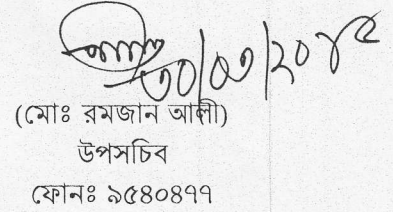 ৩০/০৩/২০১৫
(মোঃ রমজান আলী)
উপসচিব
ফোনঃ ৯৫৪০৪৭৭